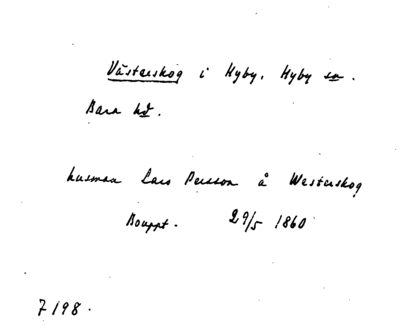 Västerskog i Hyby, Hyby sn.
Bara hd.
husman Lars Persson å Westerskog
Bouppt. 29/5 1860
7198.